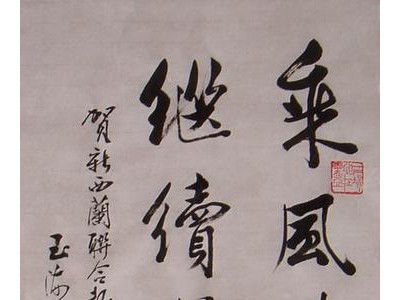 乘風
繼續
賀新西蘭聯合報
玉海